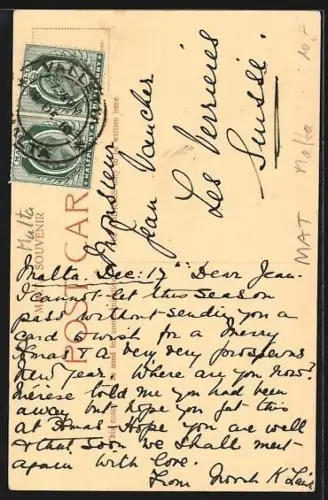 Monsieur
Jean Vaucher
Les Verrières
Suisse
Malta
10.-
MAT Malta
VALLETTA
MALTA
POST CARD
Malta. Dec: 17th Dear Jean.
I cannot let this season
pass without sending you a
card & wish for a Merry
Xmas & a very very prosperous
New Year. Where are you now?
told me you had been
away but hope you get this
at Xmas. Hope you are well
& that soon we shall meet
again with love.
From